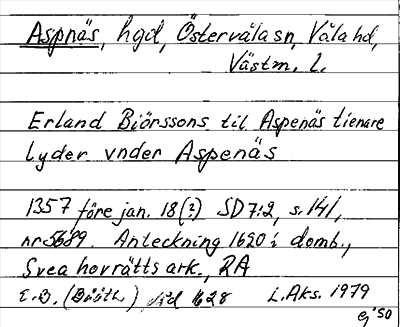 Aspnäs, hgd, Östervåla sn, Våla hd,
Västm. l.
Erland Biörssons til Aspenäs tienare
lyder vnder Aspenäs
1357 före jan. 18(?) SD 7:2, s. 141,
nr 5689. Anteckning 1620 i domb.,
Svea hovrätts ark., RA
E.B. (Bååth) 1628 L. Aks. 1979